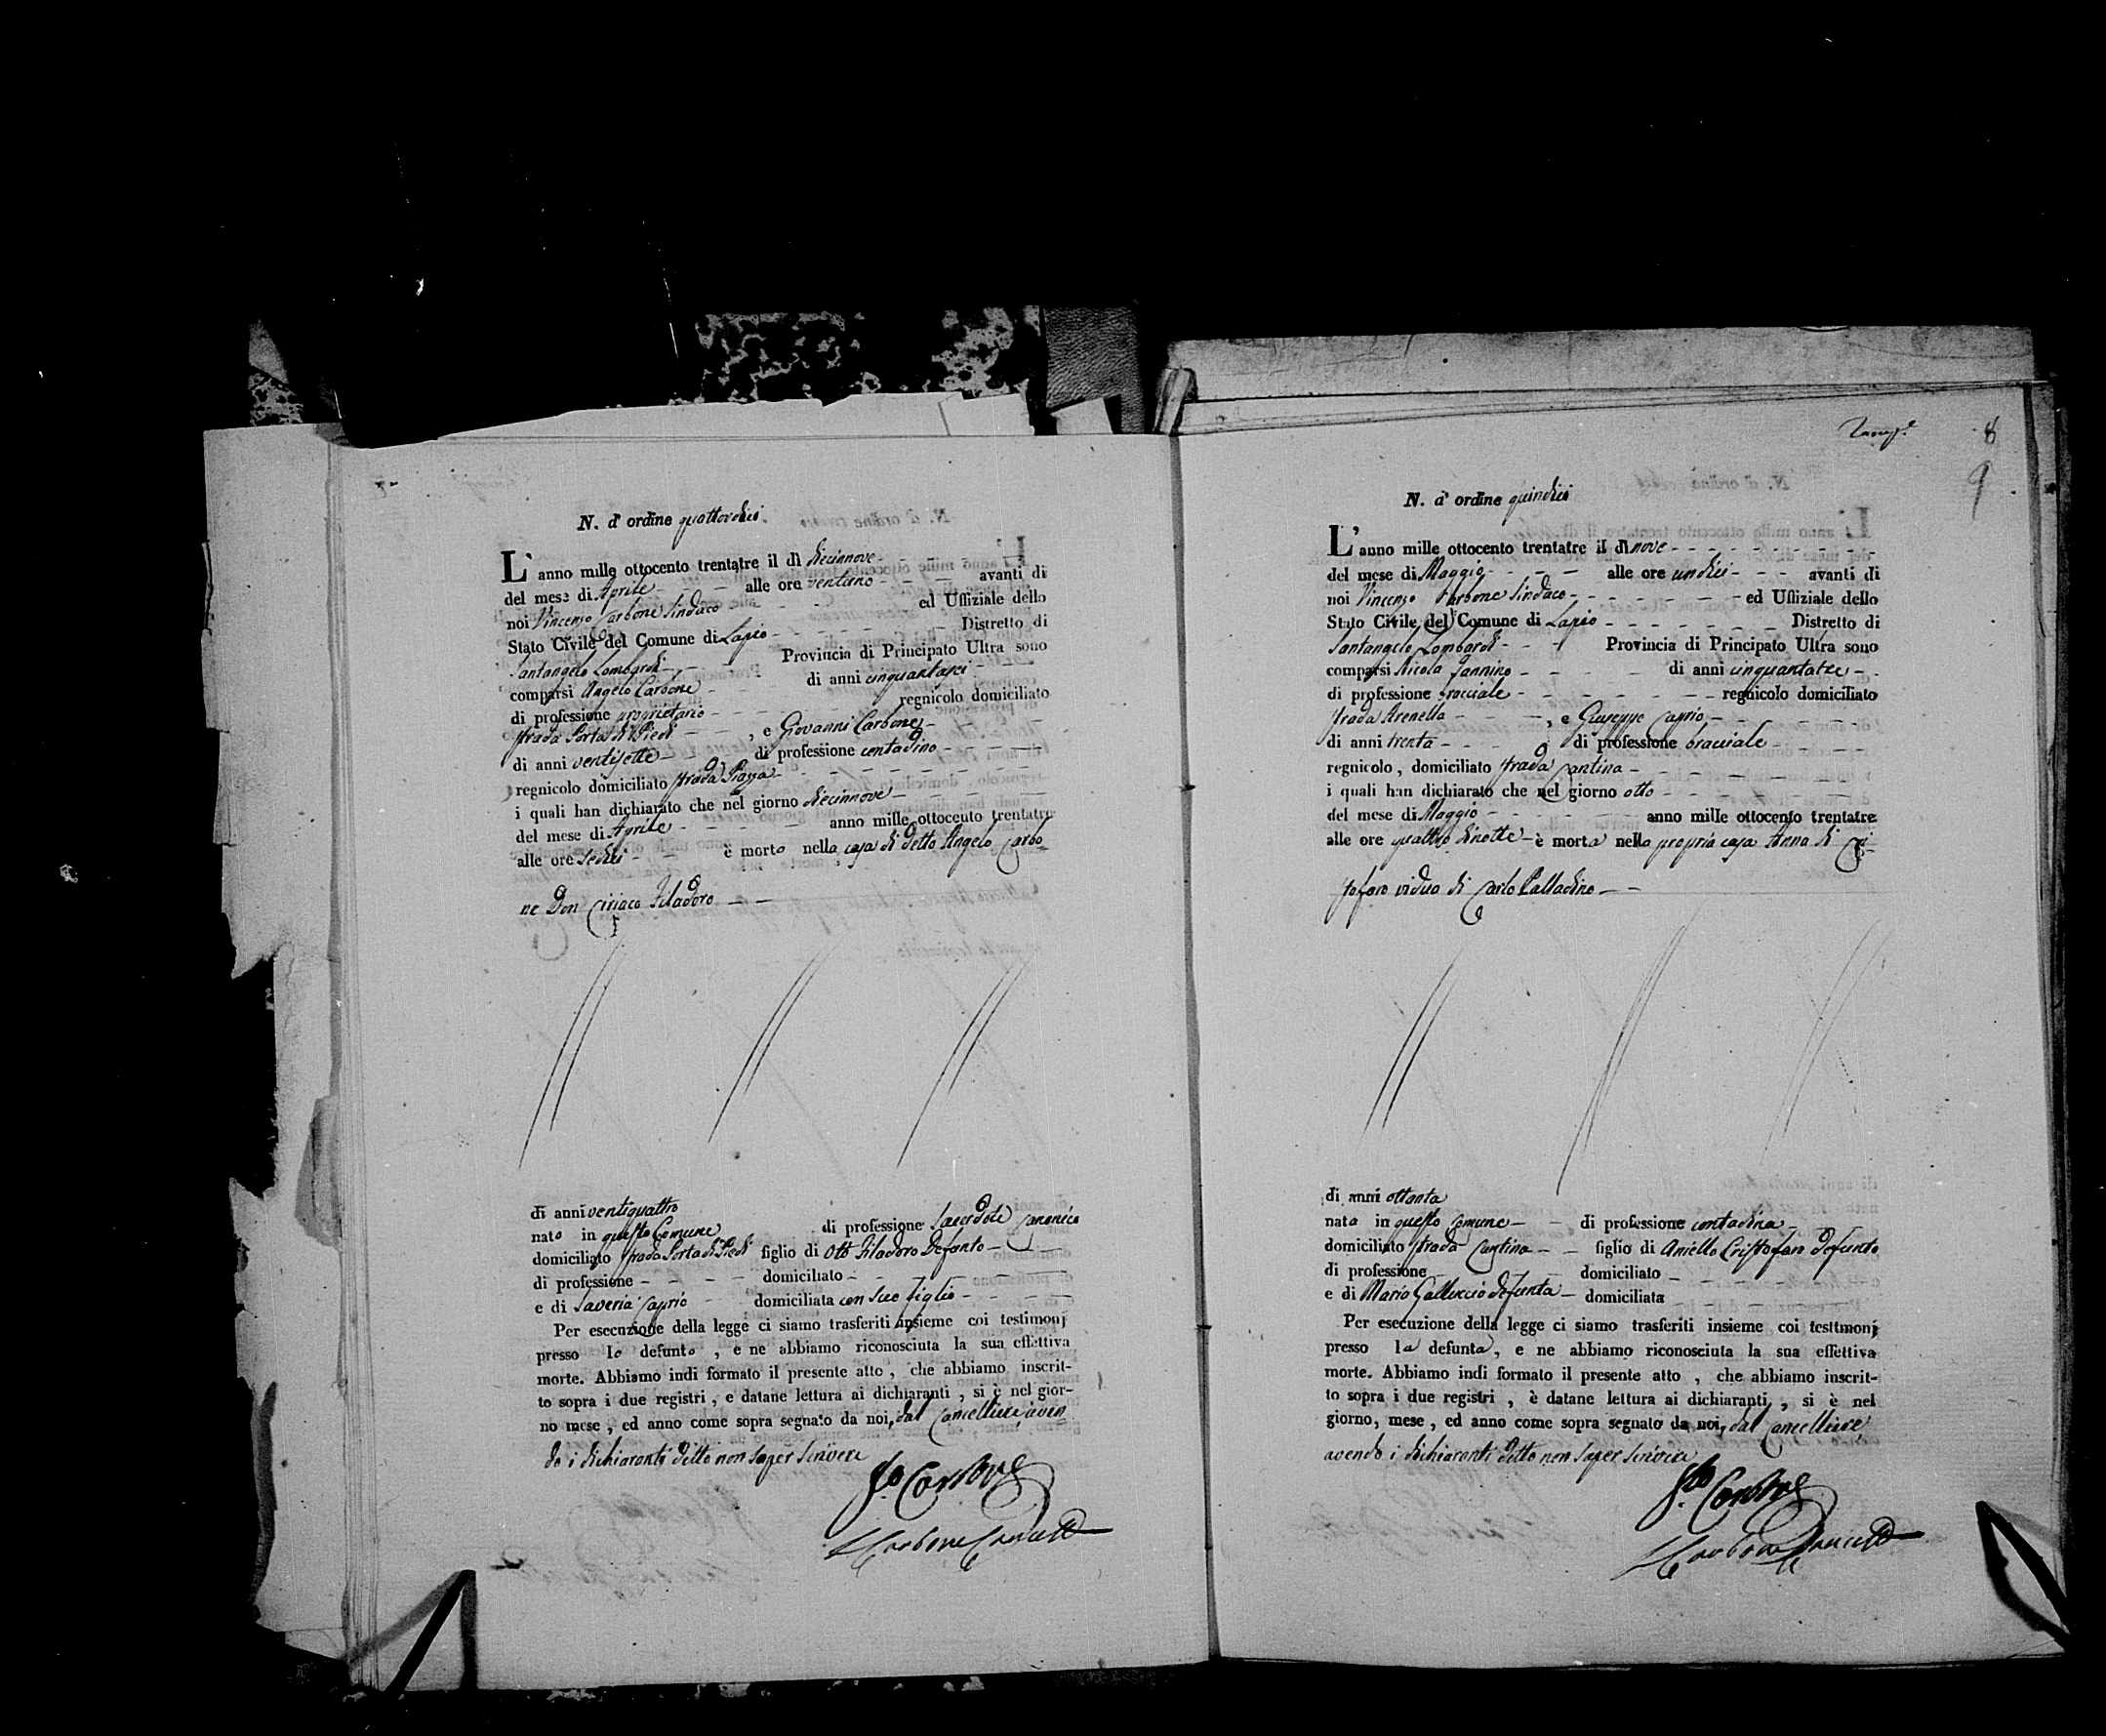 N. d' ordine quattordici
L' anno mille ottocento trentatre il dì diecinnove
del mese di Aprile alle ore ventuno avanti di
noi Vincenzo Carbone Sindaco ed Uffiziale dello
Stato Civile del Comune di Lapio Distretto di
Santangelo Lombardi Provincia di Principato Ultra sono
comparsi Angelo Carbone di anni cinquantasei
di professione proprietario regnicolo domiciliato
strada Porta di Piedi , e Giovanni Carbone
di anni ventisette di professione contadino
regnicolo domiciliato strada Piazza
i quali han dichiarato che nel giorno diecinnove
del mese di Aprile anno mille ottocento trentatre
alle ore sedici è morto nella casa di detto Angelo Carbo
ne Don Ciriaco Filadoro
di anni ventiquattro
nato in questo Comune di professione Sacerdote Canonico
domiciliato strada Porta di Piedi figlio di Filadoro Defunto
di professione domiciliato
e di Saveria Caprio domiciliata con suo figlio
Per esecuzione della legge ci siamo trasferiti insieme coi testimonj
presso lo defunto , e ne abbiamo riconosciuta la sua effettiva
morte. Abbiamo indi formato il presente atto , che abbiamo inscrit-
to sopra i due registri , e datane lettura ai dichiaranti , si è nel gior-
no mese , ed anno come sopra segnato da noi, dal Cancelliere aven
do i dichiaranti detto non saper scrivere
Carbone
Carbone
8
9
N. d' ordine quindici
L' anno mille ottocento trentatre il dì nove
del mese di Maggio alle ore undici avanti di
noi Vincenzo Carbone Sindaco ed Uffiziale dello
Stato Civile del Comune di Lapio Distretto di
Santangelo Lombardi Provincia di Principato Ultra sono
comparsi Nicola Iannino di anni cinquantatre
di professione bracciale regnicolo domiciliato
strada Arenella , e Giuseppe Caprio
di anni trenta di professione bracciale
regnicolo , domiciliato strada Cantina
i quali han dichiarato che nel giorno otto
del mese di Maggio anno mille ottocento trentatre
alle ore quattro di notte è morta nella propria casa Anna di Cri-
stofaro vidua di Carlo Palladino
di anni ottanta
nata in questo Comune di professione contadina
domiciliato strada Cantina figlio di Aniello Cristofaro defunto
di professione domiciliato
e di Maria Galluccio defunta domiciliata
Per esecuzione della legge ci siamo trasferiti insieme coi testimonj
presso la defunta, e ne abbiamo riconosciuta la sua effettiva
morte. Abbiamo indi formato il presente atto , che abbiamo inscrit-
to sopra i due registri , è datane lettura ai dichiaranti , si è nel
giorno, mese , ed anno come sopra segnato da noi, dal Cancelliere
avendo i dichiaranti detto non saper scrivere
Carbone
Carbone